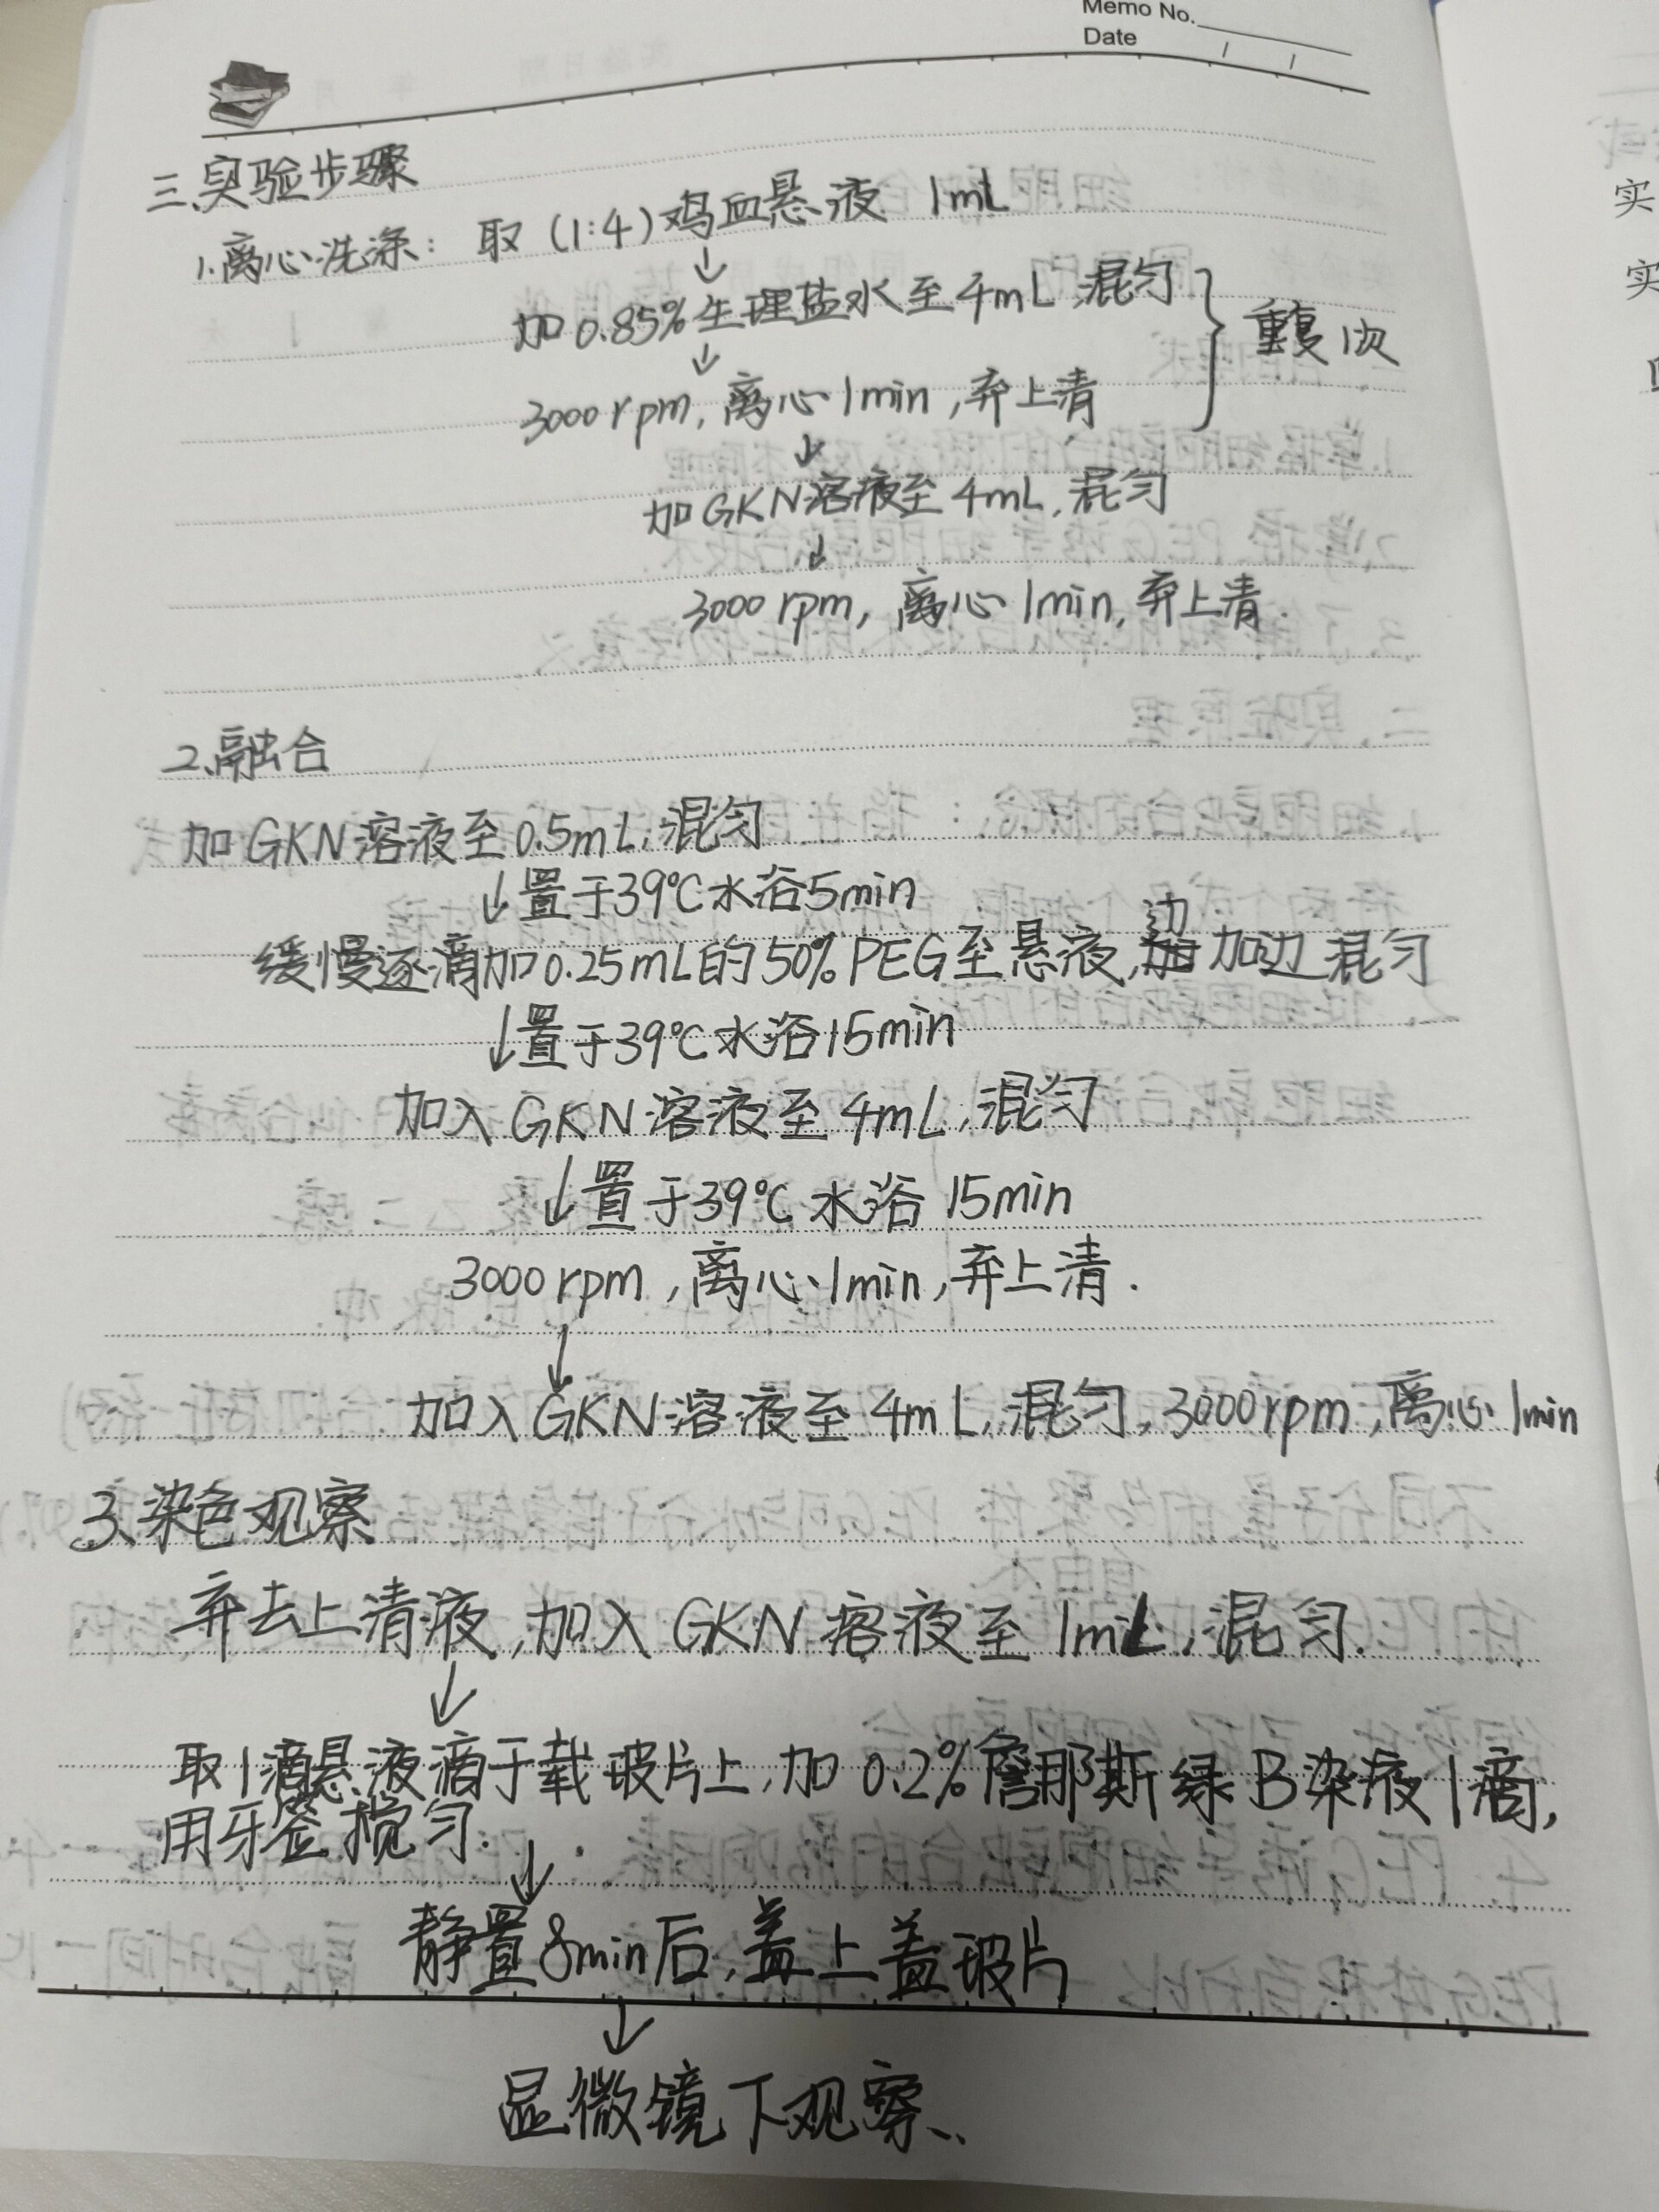 Memo No.
Date / /
三、实验步骤
1.离心洗涤: 取(1:4)鸡血悬液 1mL
↓
加0.85%生理盐水至4mL,混匀
↓
3000rpm,离心1min,弃上清
} 重复1次
↓
加GKN溶液至4mL,混匀
↓
3000 rpm, 离心1min,弃上清.
2、融合
加GKN溶液至0.5mL,混匀
↓置于39℃水浴5min
缓慢逐滴加0.25mL的50% PEG至悬液,边加边混匀
↓置于39℃水浴15min
加入GKN溶液至4mL,混匀
↓置于39℃水浴 15min
3000rpm,离心1min,弃上清.
↓
加入GKN溶液至4mL,混匀,3000rpm,离心1min
3、染色观察
弃去上清液,加入GKN溶液至1mL,混匀.
↓
取1滴悬液滴于载玻片上,加0.2%詹那斯绿B染液1滴,
用牙签搅匀.
↓
静置8min后,盖上盖玻片
↓
显微镜下观察、
实
实